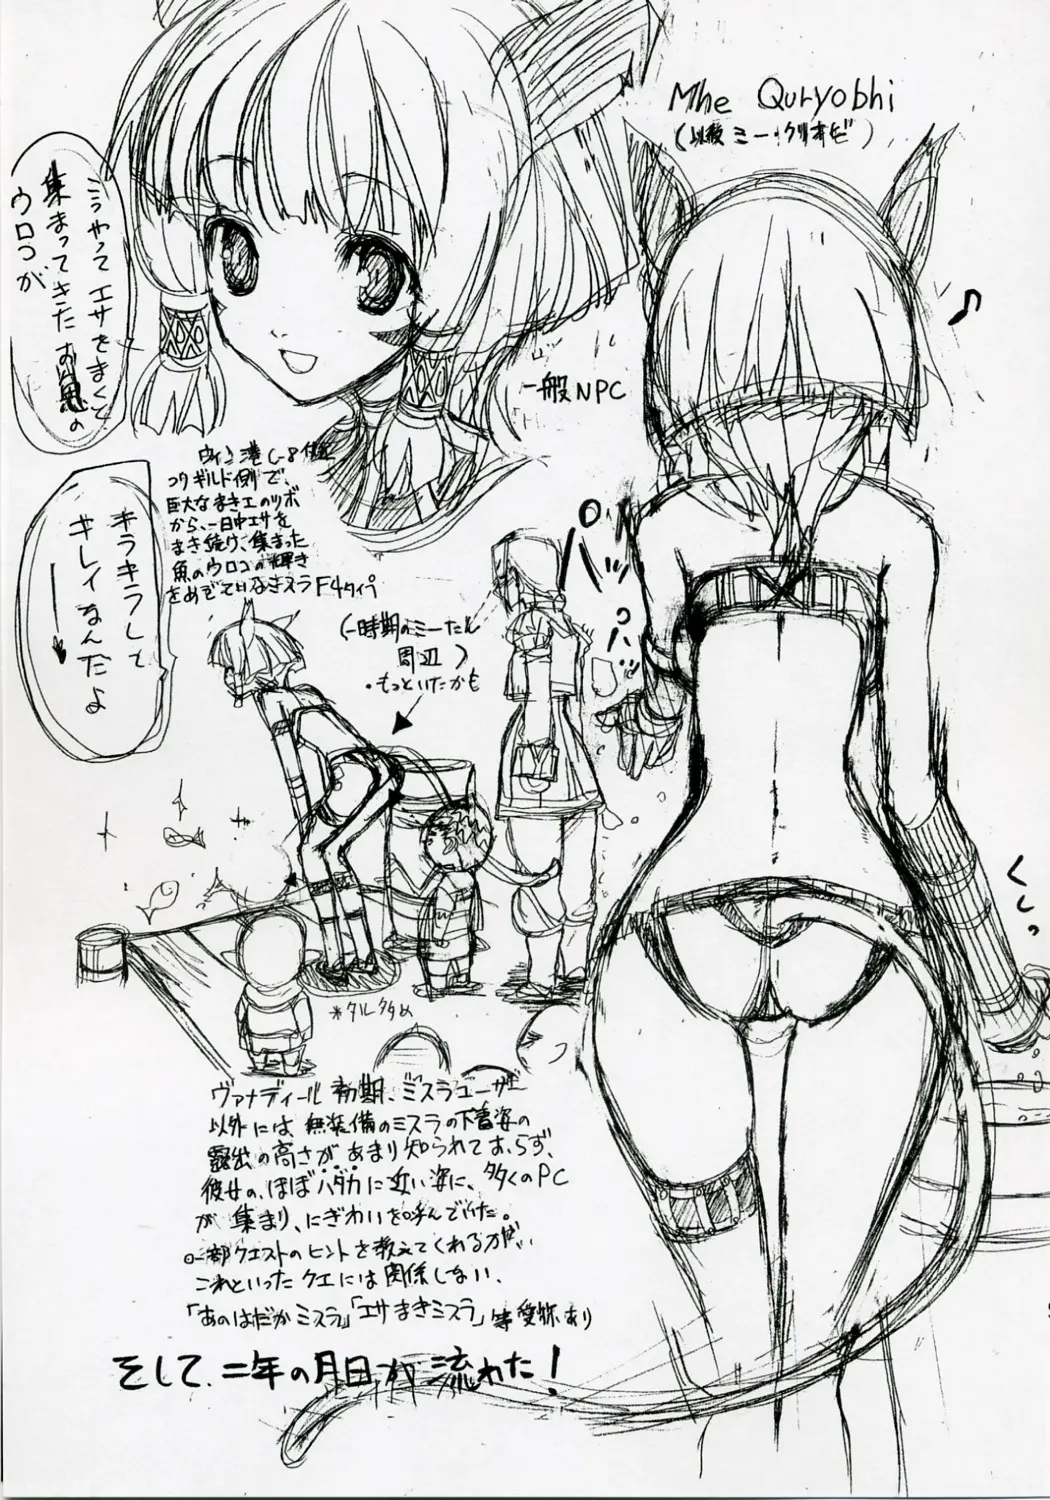 Mhe Quryobhi
(以後 ミー・クリオビ)
こうやって エサをまくと
集まってきた お魚の
ウロコが
♪
一般NPC
コウギルド側で、
巨大なまきエのツボ
から、一日中エサを
まき続け、集まった
魚のウロコの輝き
をめでているミスラ F4タイプ
キラキラして
キレイなんだよ
(一時期のミーたん
周辺)
・もっといたかも
ハッ
くい。
*タル多め
ヴァナディール 初期、ミスラユーザー
以外には 無装備のミスラの下着姿の
露出の高さが あまり知られておらず、
彼女の、ほぼハダカに近い姿に、多くのPC
が 集まり、にぎわいを呼んでいた。
一部クエストの ヒントを教えてくれる方だが、
これといった クエには 関係しない、
「あのはだか ミスラ」「エサ まきミスラ」 等 愛称あり
そして、二年の月日が 流れた!